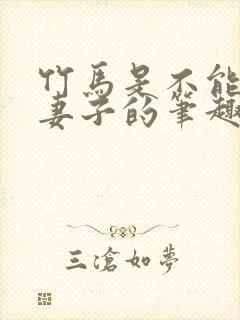 竹马是不能
妻子的笔趣
三滄如夢